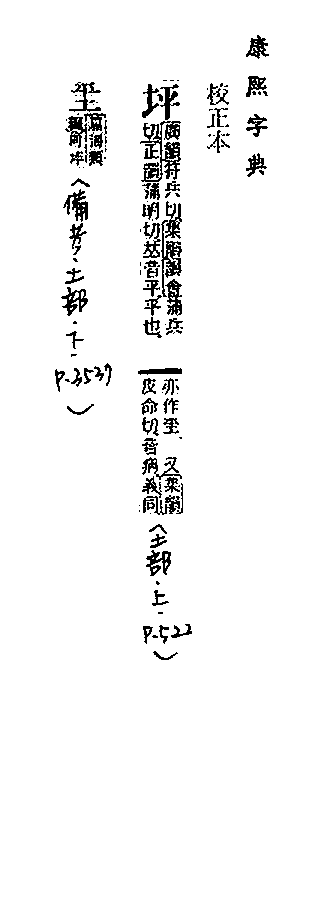 康熙字典
校正本
坪
廣韻符兵切集韻韻會蒲兵
切正韻蒲明切𠀤音平平也、
亦作、又集韻
皮命切音病義同
(土部·上·P.522)
篇海類
編同坪
(備考·土部·下·P.3537)